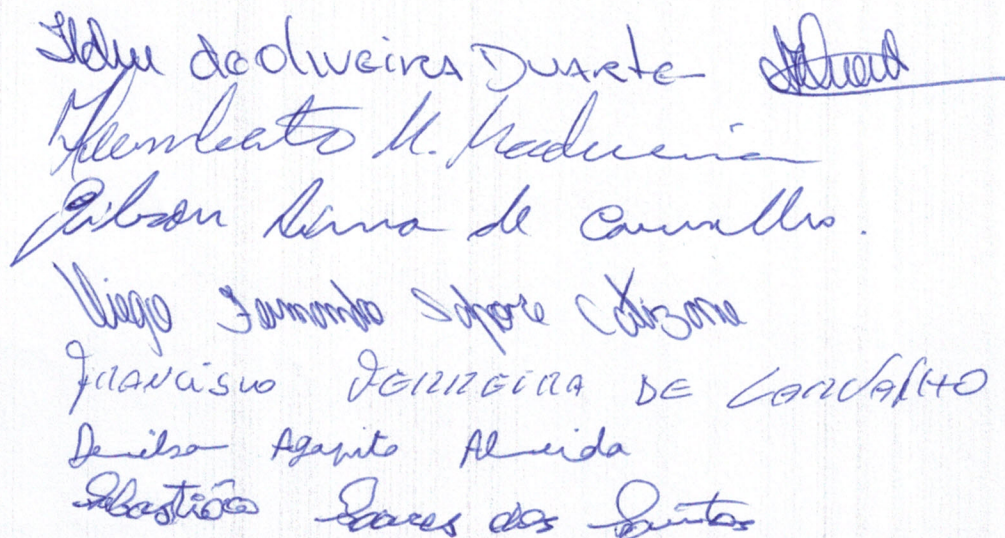 de Oliveira Duarte
Humberto M. Madureira
Gilson Lima de Carvalho.
Diego Fernando Sapore
Francisco Ferreira de Carvalho
Denilson Agapito Almeida
Sebastião Soares dos Santos